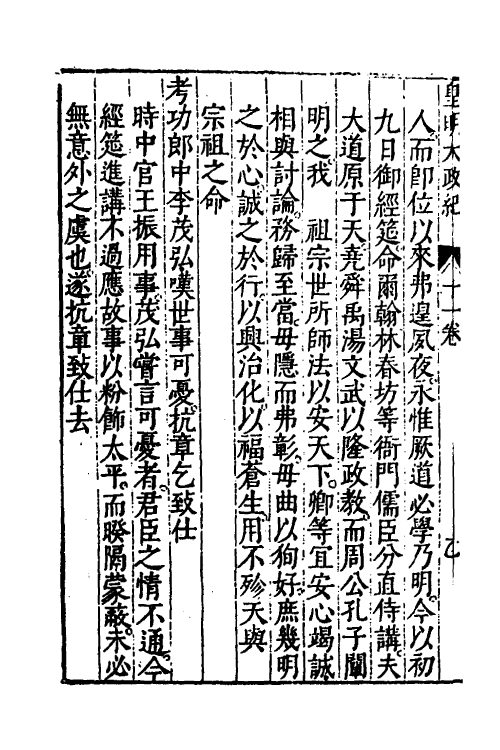 皇明大政紀 十一卷 乙
人而卽位以來弗遑夙夜永惟厥道必學乃明今以初
九日御經筵命爾翰林春坊等衙門儒臣分直侍講夫
大道原于天堯舜禹湯文武以隆政教而周公孔子闡
明之我　祖宗世所師法以安天下卿等宜安心竭誠
相與討論務歸至當毋隱而弗彰毋曲以狥好庶幾明
之於心誠之於行以興治化以福蒼生用不殄天與
宗祖之命
考功郎中李茂弘嘆世事可憂抗章乞致仕
時中官王振用事茂弘嘗言可憂者君臣之情不通今
經筵進講不過應故事以粉飾太平而暌隔蒙蔽未必
無意外之虞也遂抗章致仕去